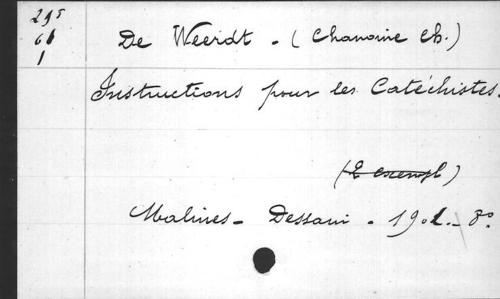 295
De Weerdt - (Chanoine Ch.)
61
1
Instructions pour les Catéchistes.
(2 exempl)
Malines - Dessain - 190 - 8º.